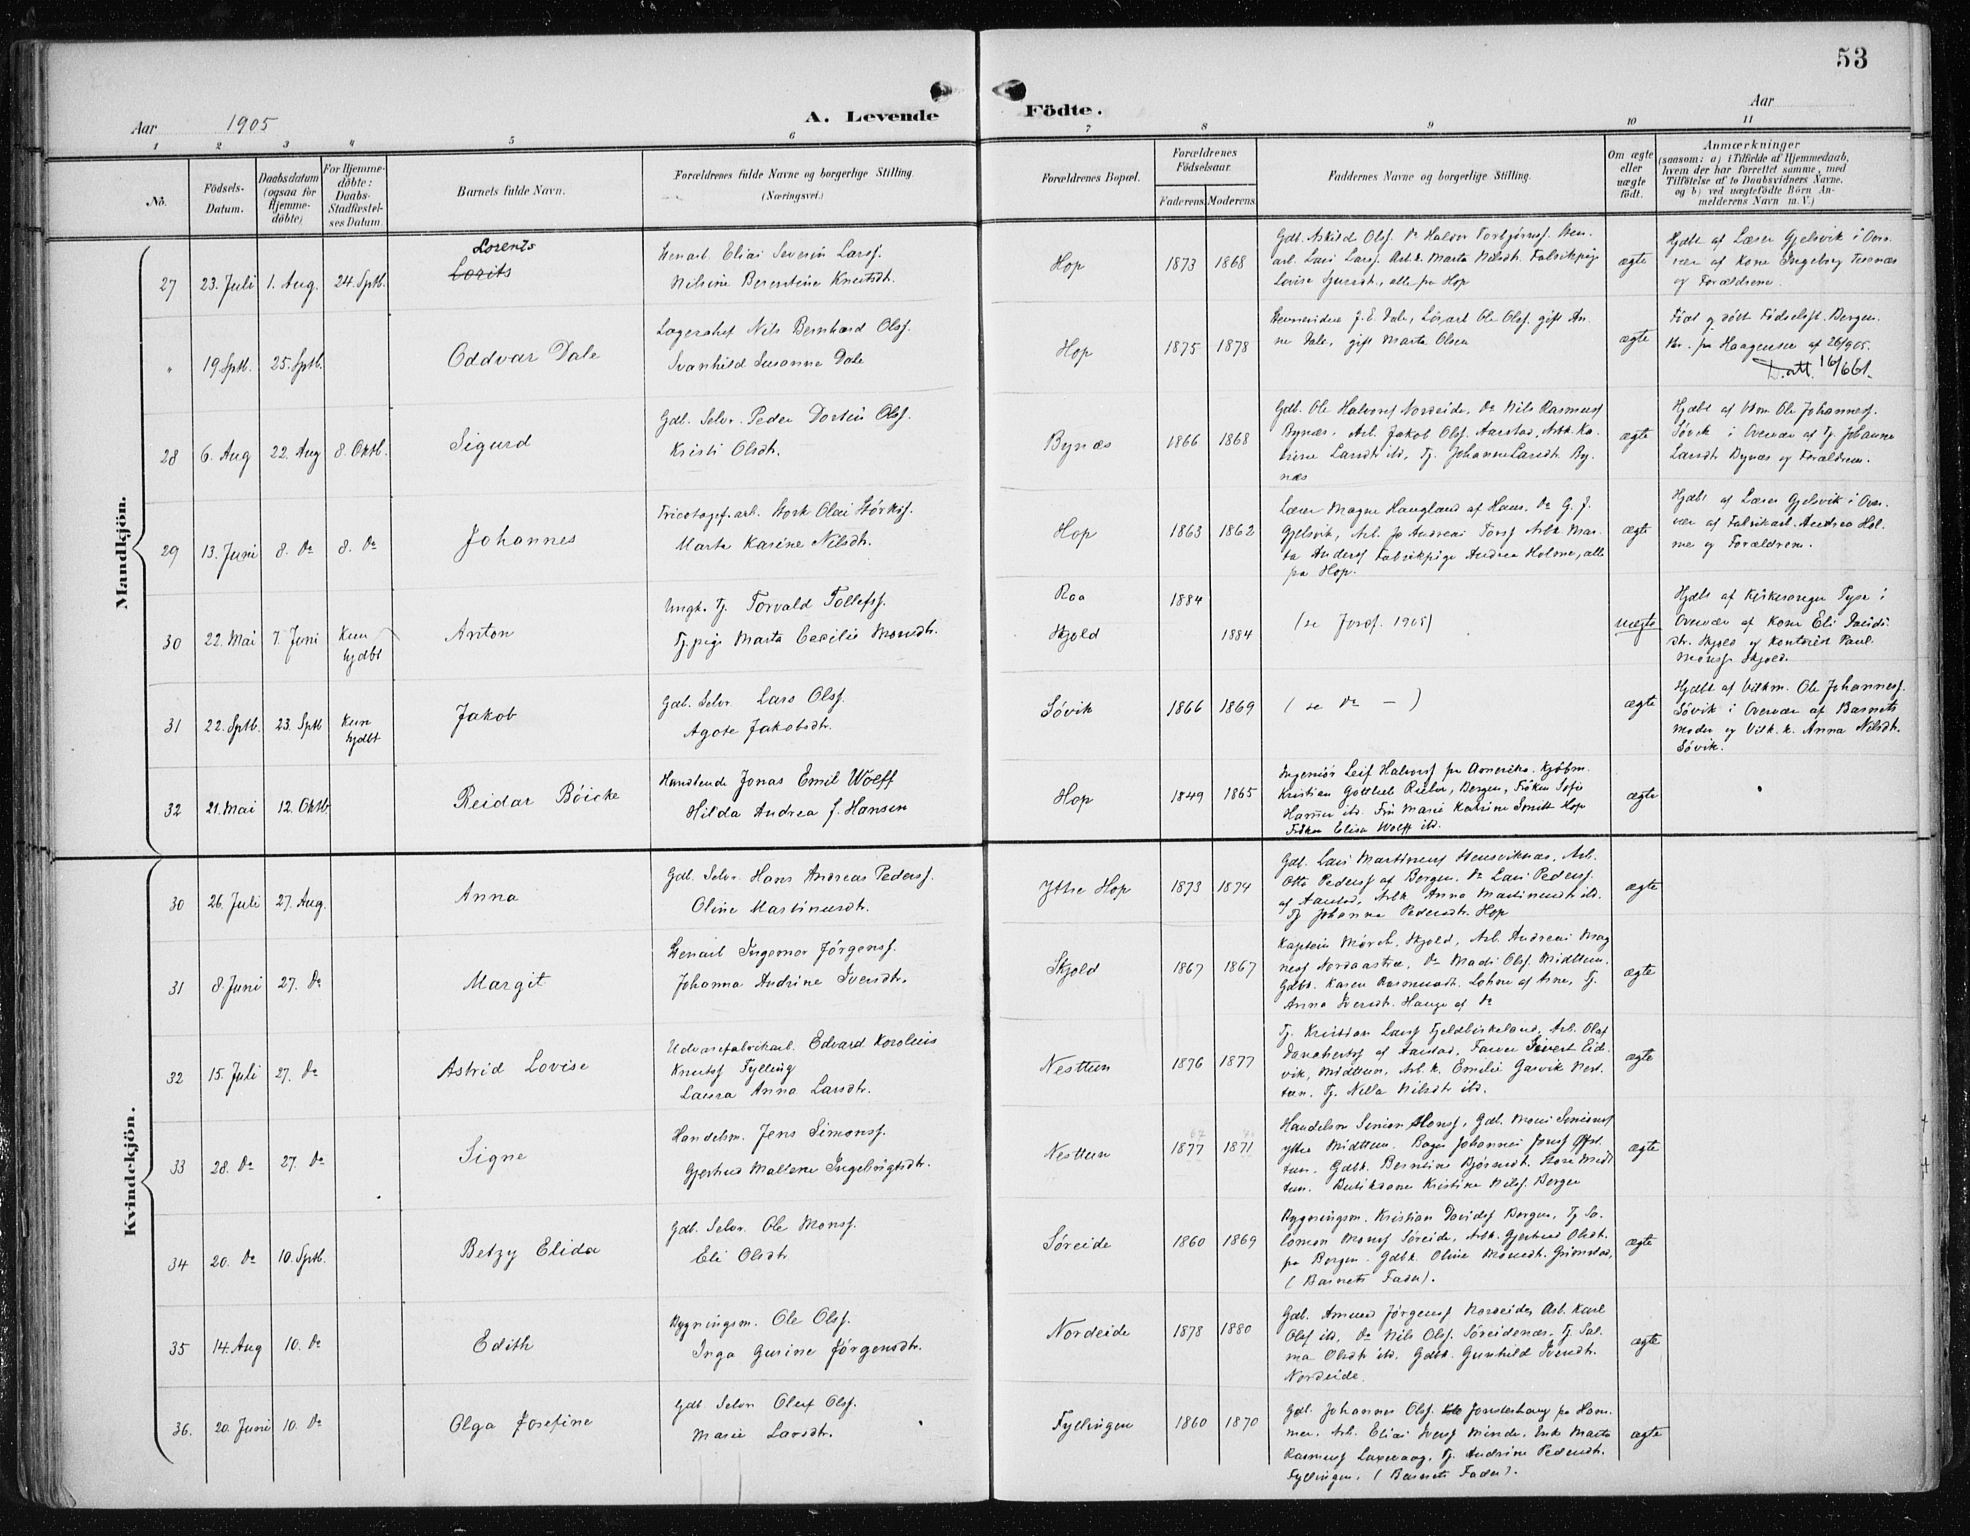 53
A. Levende Födte.
Aar 1905
Aar
1 2 3 4 5 6 7 8 9 10 11
No.
Födsels-Datum.
Daabsdatum (ogsaa for Hjemme-döbte)
For Hjemme-döbte: Daabs-Stadfæstel-ses Datum
Barnets fulde Navn.
Forældrenes fulde Navne og borgerlige Stilling. (Næringsvei.)
Forældrenes Bopæl.
Forældrenes Födselsaar.
Faderens Moderens
Faddernes Navne og borgerlige Stilling.
Om ægte eller uægte födt.
Anmærkninger
(saasom: a) i Tilfælde af Hjemmedaab,
hvem der har forrettet samme, med
Tilföielse af to Daabsvidners Navne.
og b) ved uægtefödte Börn An-
melderens Navn m. V.)
Mandkjön.
27 23. Juli 1. Aug. 24. Sptb. Lorents
Lorits
Elias Severin Larsf.
Nilsine Berentine Knutsdtr.
Hop 1873 1868
Gdb. Askild Olsf. Do Halvor Torbjørnsf.
arb. Lars Larsf. Arb.k. Marta Nilsdt. Fabrikpige
Lovise alle fra Hop
ægte
Hjdbt af Lærer Gjelsvik i Over-
vær af Kone Ingeborg
og Forældrene.
" 19 Sptb. 25. Sptb. Oddvar Dale
Lagerchef Nils Bernhard Olsf.
Svanhild Susanne Dale
Hop 1875 1878
J. E. Dale, Ole Olsf. gift An-
ne Dale, gift Marta Olsen
ægte
Født og døbt Fødselsst. Bergen.
Haagensen af 26/9 05.
D.att. 16/6 61.
28 6. Aug 22. Aug 8. Oktb. Sigurd
Gdb. Selvr. Peder Dortin Olsf.
Kristi Olsdtr.
Bynæs 1866 1868
Gdb. Ole Halvorsf Nordeide, Do Nils Rasmusf
Bynæs, Arb. Jakob Olsf. Aarstad, Arb.k. Ka-
Larsdtr ibd, Tj. Johanne Larsdtr. By-
næs
ægte
Hjdbt af Ole Johannesf.
Søvik i Overvær af Tj. Johanne
Larsdtr Bynæs og Forældrene.
29 13. Juni 8. Do 8. Do Johannes
Tricotagef.arb. Olai Størksf.
Marta Karine Nilsdtr.
Hop 1863 1862
Lærer Magne Haugland af Haus, Do G. J.
Gjelsvik, Arb. Jo Andreas Arb.k. Mar-
ta Andersf Fabrikpige Andrea Holme, alle
fra Hop.
ægte
Hjdbt af Lærer Gjelsvik i Over-
vær af Fabrikarb. Andrea Hol-
me og Forældrene.
30 22. Mai 7. Juni Kun hjdbt Anton
Ungk. Tj. Torvald Tollefsf.
Tj.pige Marta Cecilie Monsdtr.
Raa 1884
Skjold 1884
(se 1905)
uægte
Hjdbt af Kirkesanger i
Overvær af Kone Eli Davids-
dtr. Skjold og Kontorist Paul
Monsf Skjold.
31 22. Sptb. 23. Sptb Kun hjdbt Jakob
Gdb. Selvr. Lars Olsf.
Agote Jakobsdtr.
Søvik 1866 1869
( se Do — )
ægte
Hjdbt af Ole Johannesf.
Søvik i Overvær af Barnets
Moder og Anna Nilsdt.
Søvik.
32 21. Mai 12. Oktb. Reidar Böicke
Jonas Emil Wolff
Hilda Andrea f. Hansen
Hop 1849 1865
Ingeniør Leif Halvorsf fra Amerika. Kjøbm.
Kristian Gottlieb Bergen, Frøken Sofie
ibd. Fru Marie Katrine Smitt Hop
Frøken Elisa Wolff ibd.
ægte
Kvindekjön.
30 26. Juli 27. Aug. Anna
Gdb. Selvr. Hans Andreas Pedersf.
Oline Martinusdtr.
Ytre Hop 1873 1874
Gdb. Lars Martinusf Arb.
Otto Pedersf af Bergen, Do Lars Pedersf.
af Aarstad, Arb.k. Anna Martinusdt ibd.
Tj Johanna Pedersdtr. Hop
ægte
31 8. Juni 27. Do Margit
Ingemor Jørgensf.
Johanna Andrine Iversdtr.
Skjold 1867 1867
Kaptein Skjold, Arb. Andreas Mag-
nusf Nordaastræ, Do Mads Olsf Midttun.
Gdbk. Karen Rasmusdt. af Arne, Tj.
Anna Iversdt. Hauge af Do
ægte
32 15. Juli 27. Do Astrid Lovise
Edvard Kornelius
Knutsf Fylling
Laura Anna Larsdtr.
Nesttun 1876 1877
Tj. Kristian Larsf Fjeldbirkeland, Arb. Olaf
af Aarstad, Farver Sivert Eid-
vik, Midttun, Arb.k. Emilie Garvik Nest-
tun. Tj. Nella Nilsdt ibd.
ægte
33 28. Do 27. Do Signe
Handelsm. Jens Simonsf.
Gjertrud Malene Ingebrigtsdtr.
Nesttun 1877 1871
Handelsm Simon Monsf, Gdb. Mons Simonsf
ytre Midttun. Bager Johannes Jensf
tun. Gdbk. Berntine Bjørnsdt. Store Midt
tun. Kristine Nilsf. Bergen
ægte
34 20. Do 10. Sptb. Betzy Elida
Gdb. Selvr. Ole Monsf.
Eli Olsdtr
Søreide 1860 1869
Bygningsm. Kristian Davidsf Bergen, Tj Sa-
lomon Monsf Søreide, Arb.k. Gjertrud Olsdt.
fra Bergen. Gdbk. Oline Monsdt. Grimstad,
(Barnets Fader).
ægte
35 14. Aug 10. Do Edith
Bygningsm. Ole Olsf.
Inga Gurine Jørgensdtr.
Nordeide 1878 1880
Gdb. Amund Jørgensf Nordeide, Arb. Karl
Olsf ibd, Do Nils Olsf. Søreidenæs, Tj Sal-
ma Olsdt ibd, Gdbk. Gunhild Ivensdt.
Nordeide.
ægte
36. 20. Juni 10. Do Olga Josefine
Gdb Selvr Oluf Olsf.
Marie Larsdtr.
Fyllingen 1860 1870
Gdb. Johannes Olsf. fra Ham-
mer, Arb. Elias Iversf Minde, Enke Marta
Rasmusf Laxevaag, Tj. Andrine Pedersdt.
Fyllingen, (Barnets Fader).
ægte